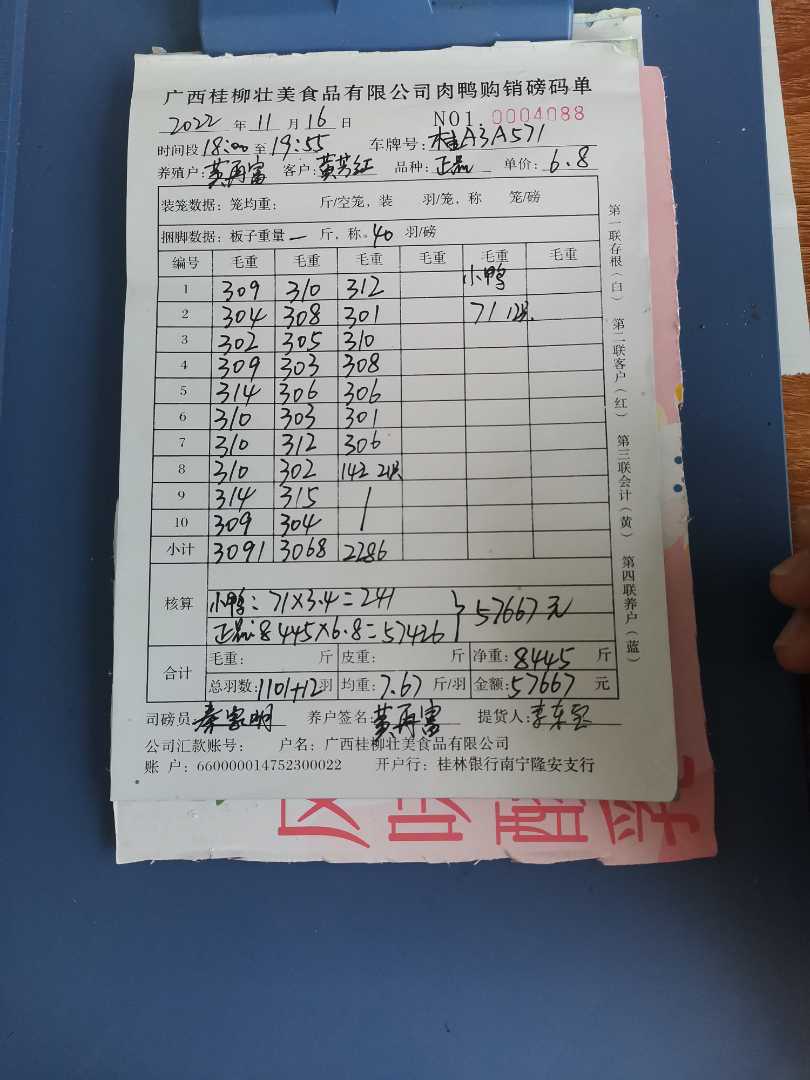 广西桂柳壮美食品有限公司肉鸭购销磅码单
2022 年 11 月 16 日 NO1. 0004088
时间段 18:00 至 19:55 车牌号: 桂A3A571
养殖户: 黄再富 客户: 黄芳红 品种: 正品 单价: 6.8
装笼数据: 笼均重: 斤/空笼, 装 羽/笼, 称 笼/磅
捆脚数据: 板子重量 一 斤, 称。40 羽/磅
编号 毛重 毛重 毛重 毛重 毛重 毛重
1 309 310 312 小鸭
2 304 308 301 71 12只
3 302 305 310
4 309 303 308
5 314 306 306
6 310 303 301
7 310 312 306
8 310 302 142 21只
9 314 315 /
10 309 304 /
小计 3091 3068 2286
核算
小鸭: 71×3.4=241
正品: 8445×6.8=57426 } 57667元
合计 毛重: 斤 皮重: 斤 净重: 8445 斤
总羽数: 1101+12 羽 均重: 7.67 斤/羽 金额: 57667 元
司磅员 秦家明 养户签名: 黄再富 提货人: 李东
公司汇款账号: 户名: 广西桂柳壮美食品有限公司
账 户: 660000014752300022 开户行: 桂林银行南宁隆安支行
第一联存根(白) 第二联客户(红) 第三联会计(黄) 第四联养户(蓝)